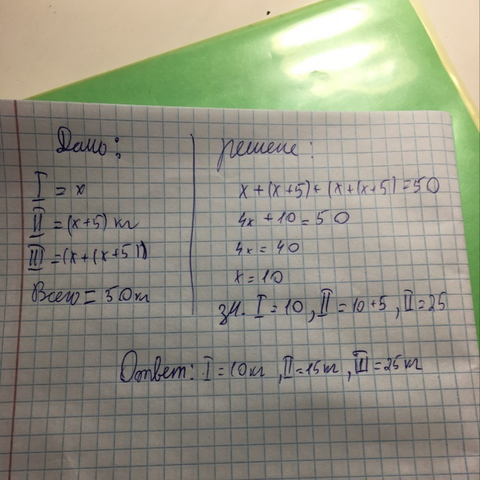 Дано:
I = x
II = (x+5) кг
III = (x + (x+5))
Всего = 50 кг
решение:
x + (x+5) + (x + (x+5) = 50
4x + 10 = 50
4x = 40
x = 10
зн. I = 10, II = 10+5, II = 25
Ответ: I = 10 кг, II = 15 кг, III = 25 кг